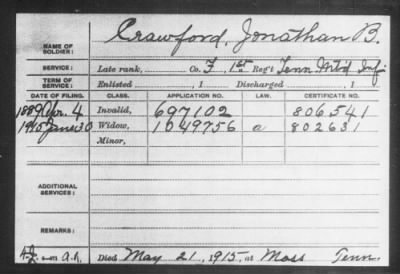 NAME OF SOLDIER: Crawford, Jonathan B.
SERVICE: Late rank, Co. F, 1st Reg't Tenn Mtd Inf.
TERM OF SERVICE: Enlisted , 1 Discharged , 1
DATE OF FILING. CLASS. APPLICATION NO. LAW. CERTIFICATE NO.
1889 Apr. 4 Invalid, 697102 806541
1915 June 30 Widow, 1049756 a 802631
Minor,
ADDITIONAL SERVICES:
REMARKS:
Died May 21, 1915, at Moss Tenn.